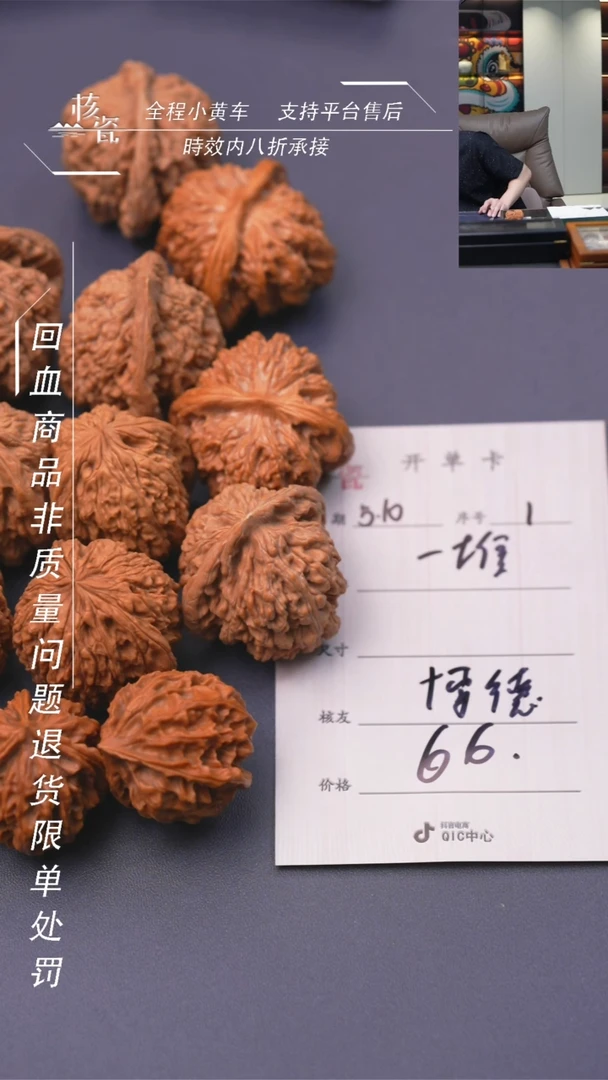 核瓷
全程小黄车 支持平台售后
時效内八折承接
回血商品非质量问题退货限单处罚
瓷 开单卡
期 5·10 序号 1
一堆
尺寸
核友 博德
价格 66.
抖音电商
QIC中心